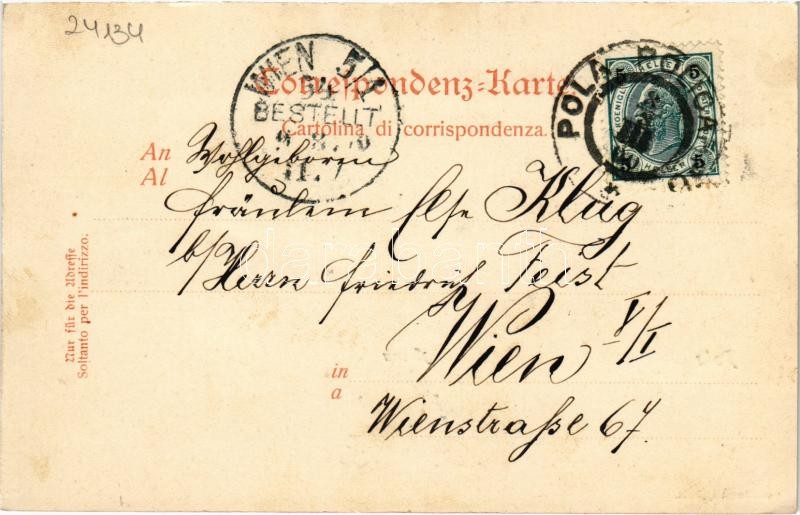 24134
WIEN 5/1
BESTELLT
POLA
5 5
5
Correspondenz-Karte
Cartolina di corrispondenza.
An Wohlgeboren
Al
Fräulein Else Klug
b/Herrn Friedrich Feist
Wien V/I
in
a
Wienstraße 67
Nur für die Adresse
Soltanto per l'indirizzo.